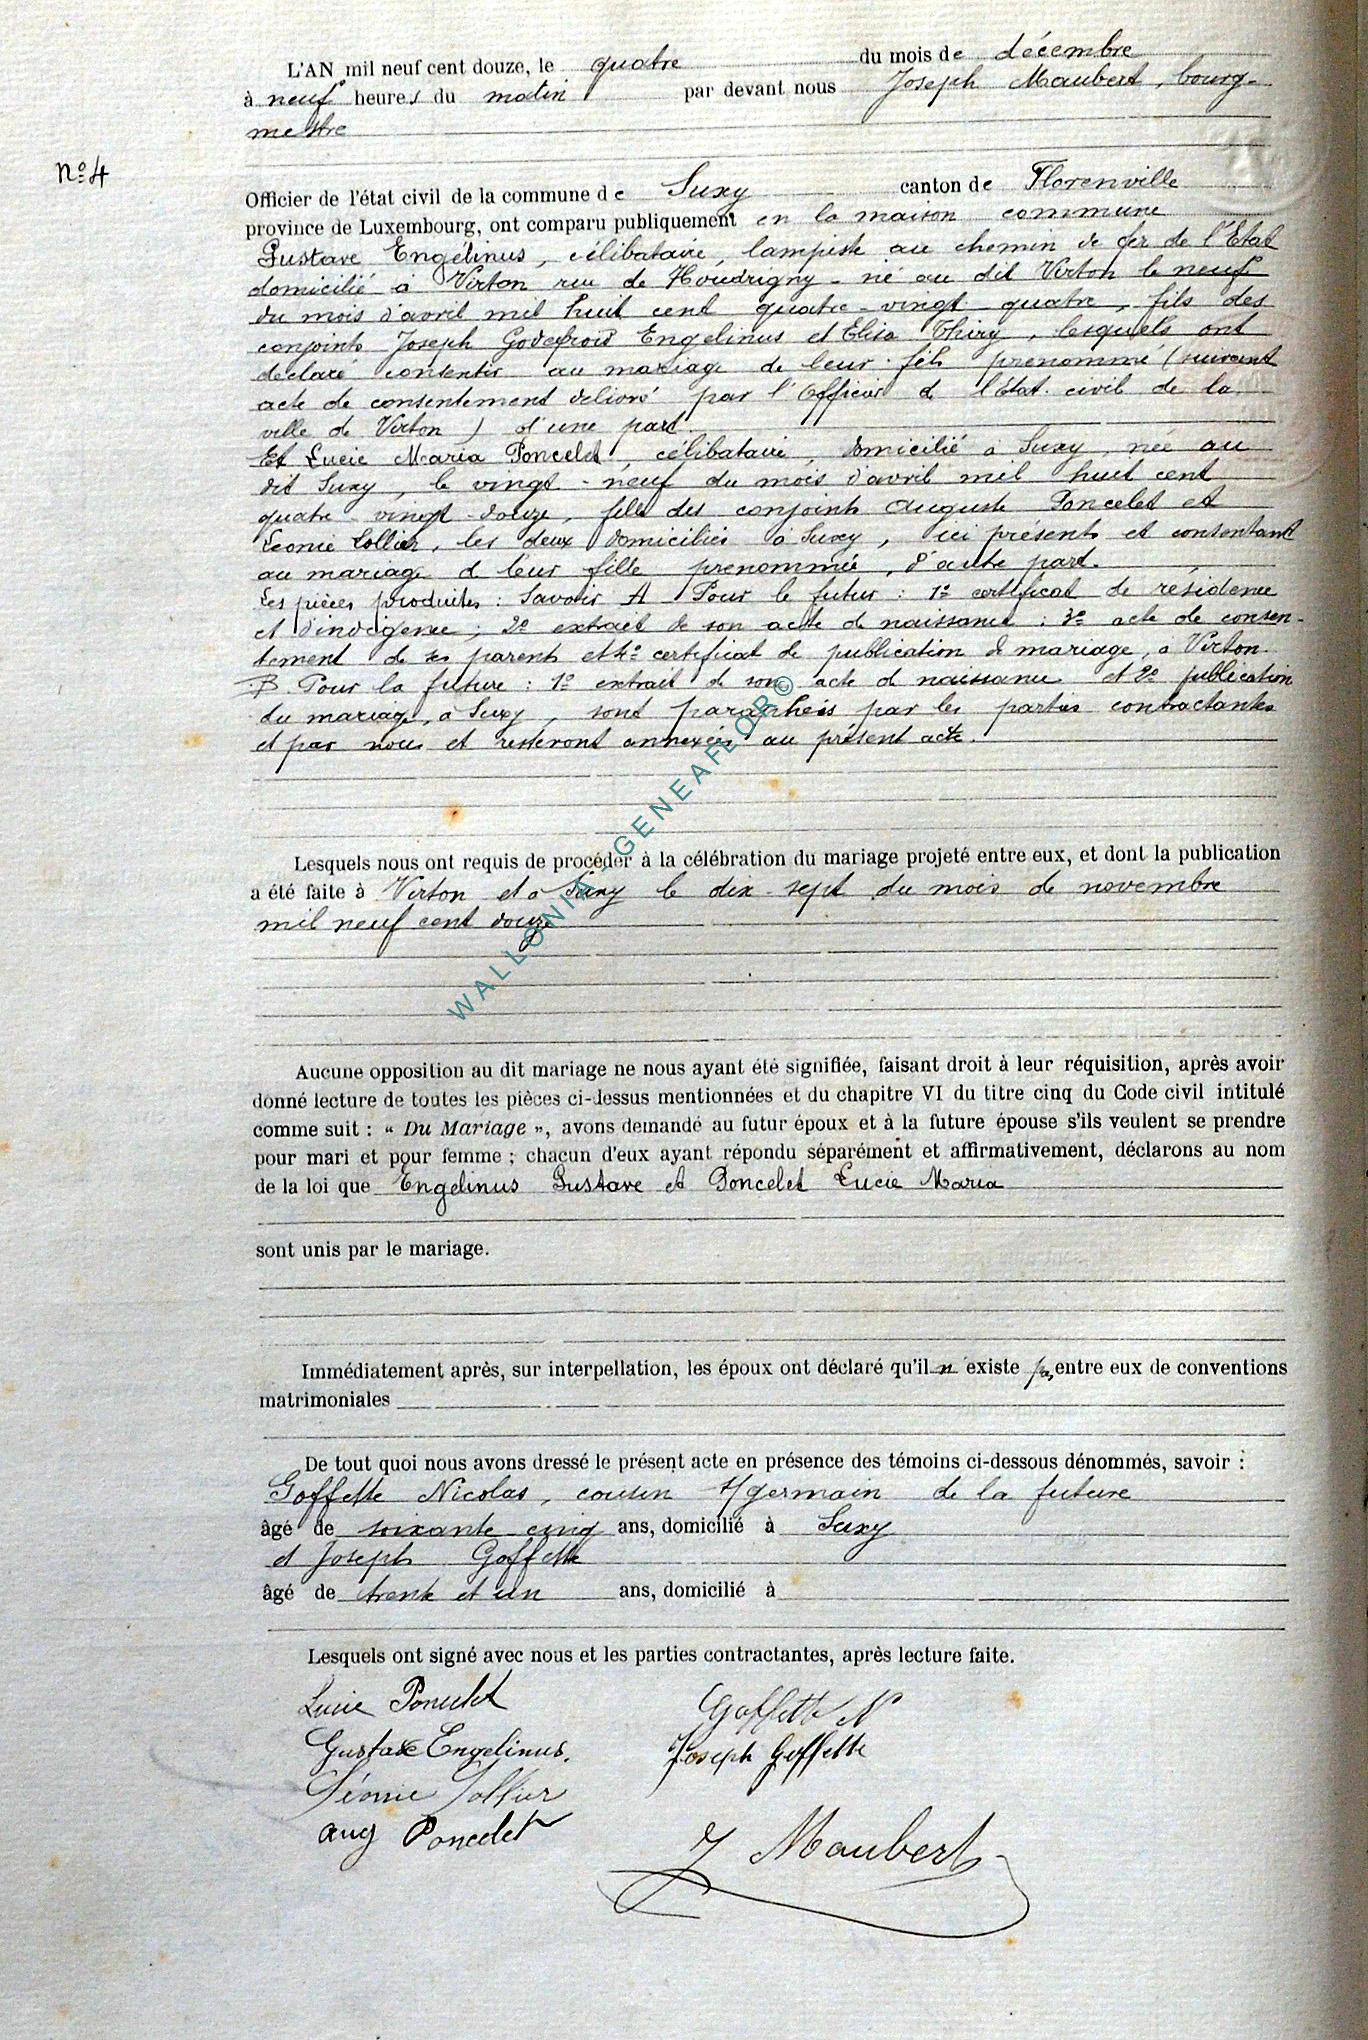 L'AN mil neuf cent douze, le quatre du mois de décembre
à neuf heures du matin par devant nous Joseph Maubert, bourg-
mestre
n° 4
Officier de l'état civil de la commune de Suxy canton de Florenville
province de Luxembourg, ont comparu publiquement en la maison commune
Gustave Engelinus, célibataire, lampiste au chemin de fer de l'Etat
domicilié à Virton rue de Houdrigny - né au dit Virton le neuf
du mois d'avril mil huit cent quatre-vingt quatre, fils des
conjoints Joseph Godefroid Engelinus et Elisa Thiry, lesquels ont
déclaré consentir au mariage de leur fils prénommé (suivant
acte de consentement délivré par l'Officier de l'état civil de la
ville de Virton) d'une part.
Et Lucie Maria Poncelet, célibataire, domicilié à Suxy, née au
dit Suxy, le vingt-neuf du mois d'avril mil huit cent
quatre-vingt-douze, fille des conjoints Auguste Poncelet et
Léonie Collier, les deux domiciliés à Suxy, ici présents et consentant
au mariage de leur fille prénommée, d'autre part.
Les pièces produites : Savoir A Pour le futur : 1° certificat de résidence
et d'indigence ; 2° extrait de son acte de naissance : 3° acte de consen-
tement de ses parents et 4° certificat de publication de mariage, à Virton.
B. Pour la future : 1° extrait de son acte de naissance et 2° publication
du mariage, à Suxy, sont paraphées par les parties contractantes
et par nous et resteront annexées au présent acte.
Lesquels nous ont requis de procéder à la célébration du mariage projeté entre eux, et dont la publication
a été faite à Virton et à Suxy le dix-sept du mois de novembre
mil neuf cent douze
WALLONIA-GENEAFLOR©
Aucune opposition au dit mariage ne nous ayant été signifiée, faisant droit à leur réquisition, après avoir
donné lecture de toutes les pièces ci-dessus mentionnées et du chapitre VI du titre cinq du Code civil intitulé
comme suit : « Du Mariage », avons demandé au futur époux et à la future épouse s'ils veulent se prendre
pour mari et pour femme ; chacun d'eux ayant répondu séparément et affirmativement, déclarons au nom
de la loi que Engelinus Gustave et Poncelet Lucie Maria
sont unis par le mariage.
Immédiatement après, sur interpellation, les époux ont déclaré qu'il n'existe pas entre eux de conventions
matrimoniales
De tout quoi nous avons dressé le présent acte en présence des témoins ci-dessous dénommés, savoir :
Goffette Nicolas, cousin germain de la future
âgé de soixante cinq ans, domicilié à Suxy
et Joseph Goffette
âgé de trente et un ans, domicilié à
Lesquels ont signé avec nous et les parties contractantes, après lecture faite.
Lucie Poncelet Goffette N
Gustave Engelinus. Joseph Goffette
Léonie Collier
Aug Poncelet J Maubert